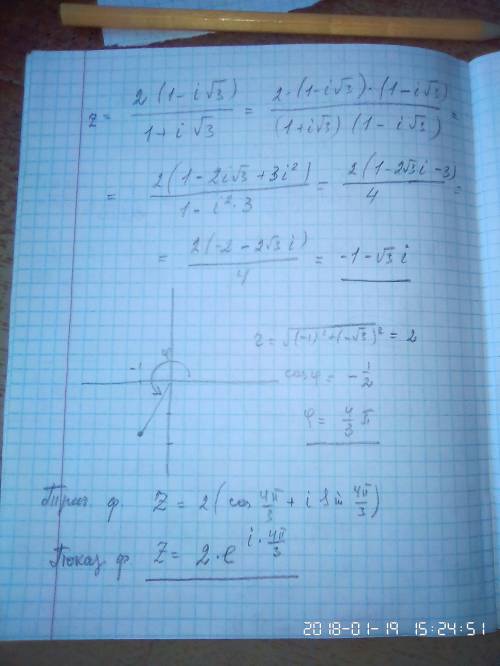 z = 2(1-i√3)/1+i√3 = 2·(1-i√3)·(1-i√3)/(1+i√3)(1-i√3) =
= 2(1-2i√3+3i²)/1-i²·3 = 2(1-2√3i-3)/4 =
= 2(-2-2√3i)/4 = -1-√3i
r = √(-1)²+(-√3)² = 2
-1
cosφ = -1/2
φ = 4/3 π
Триг. ф. Z = 2(cos 4π/3 + i sin 4π/3)
Показ ф Z = 2·e^i·4π/3
2018-01-19 15:24:51